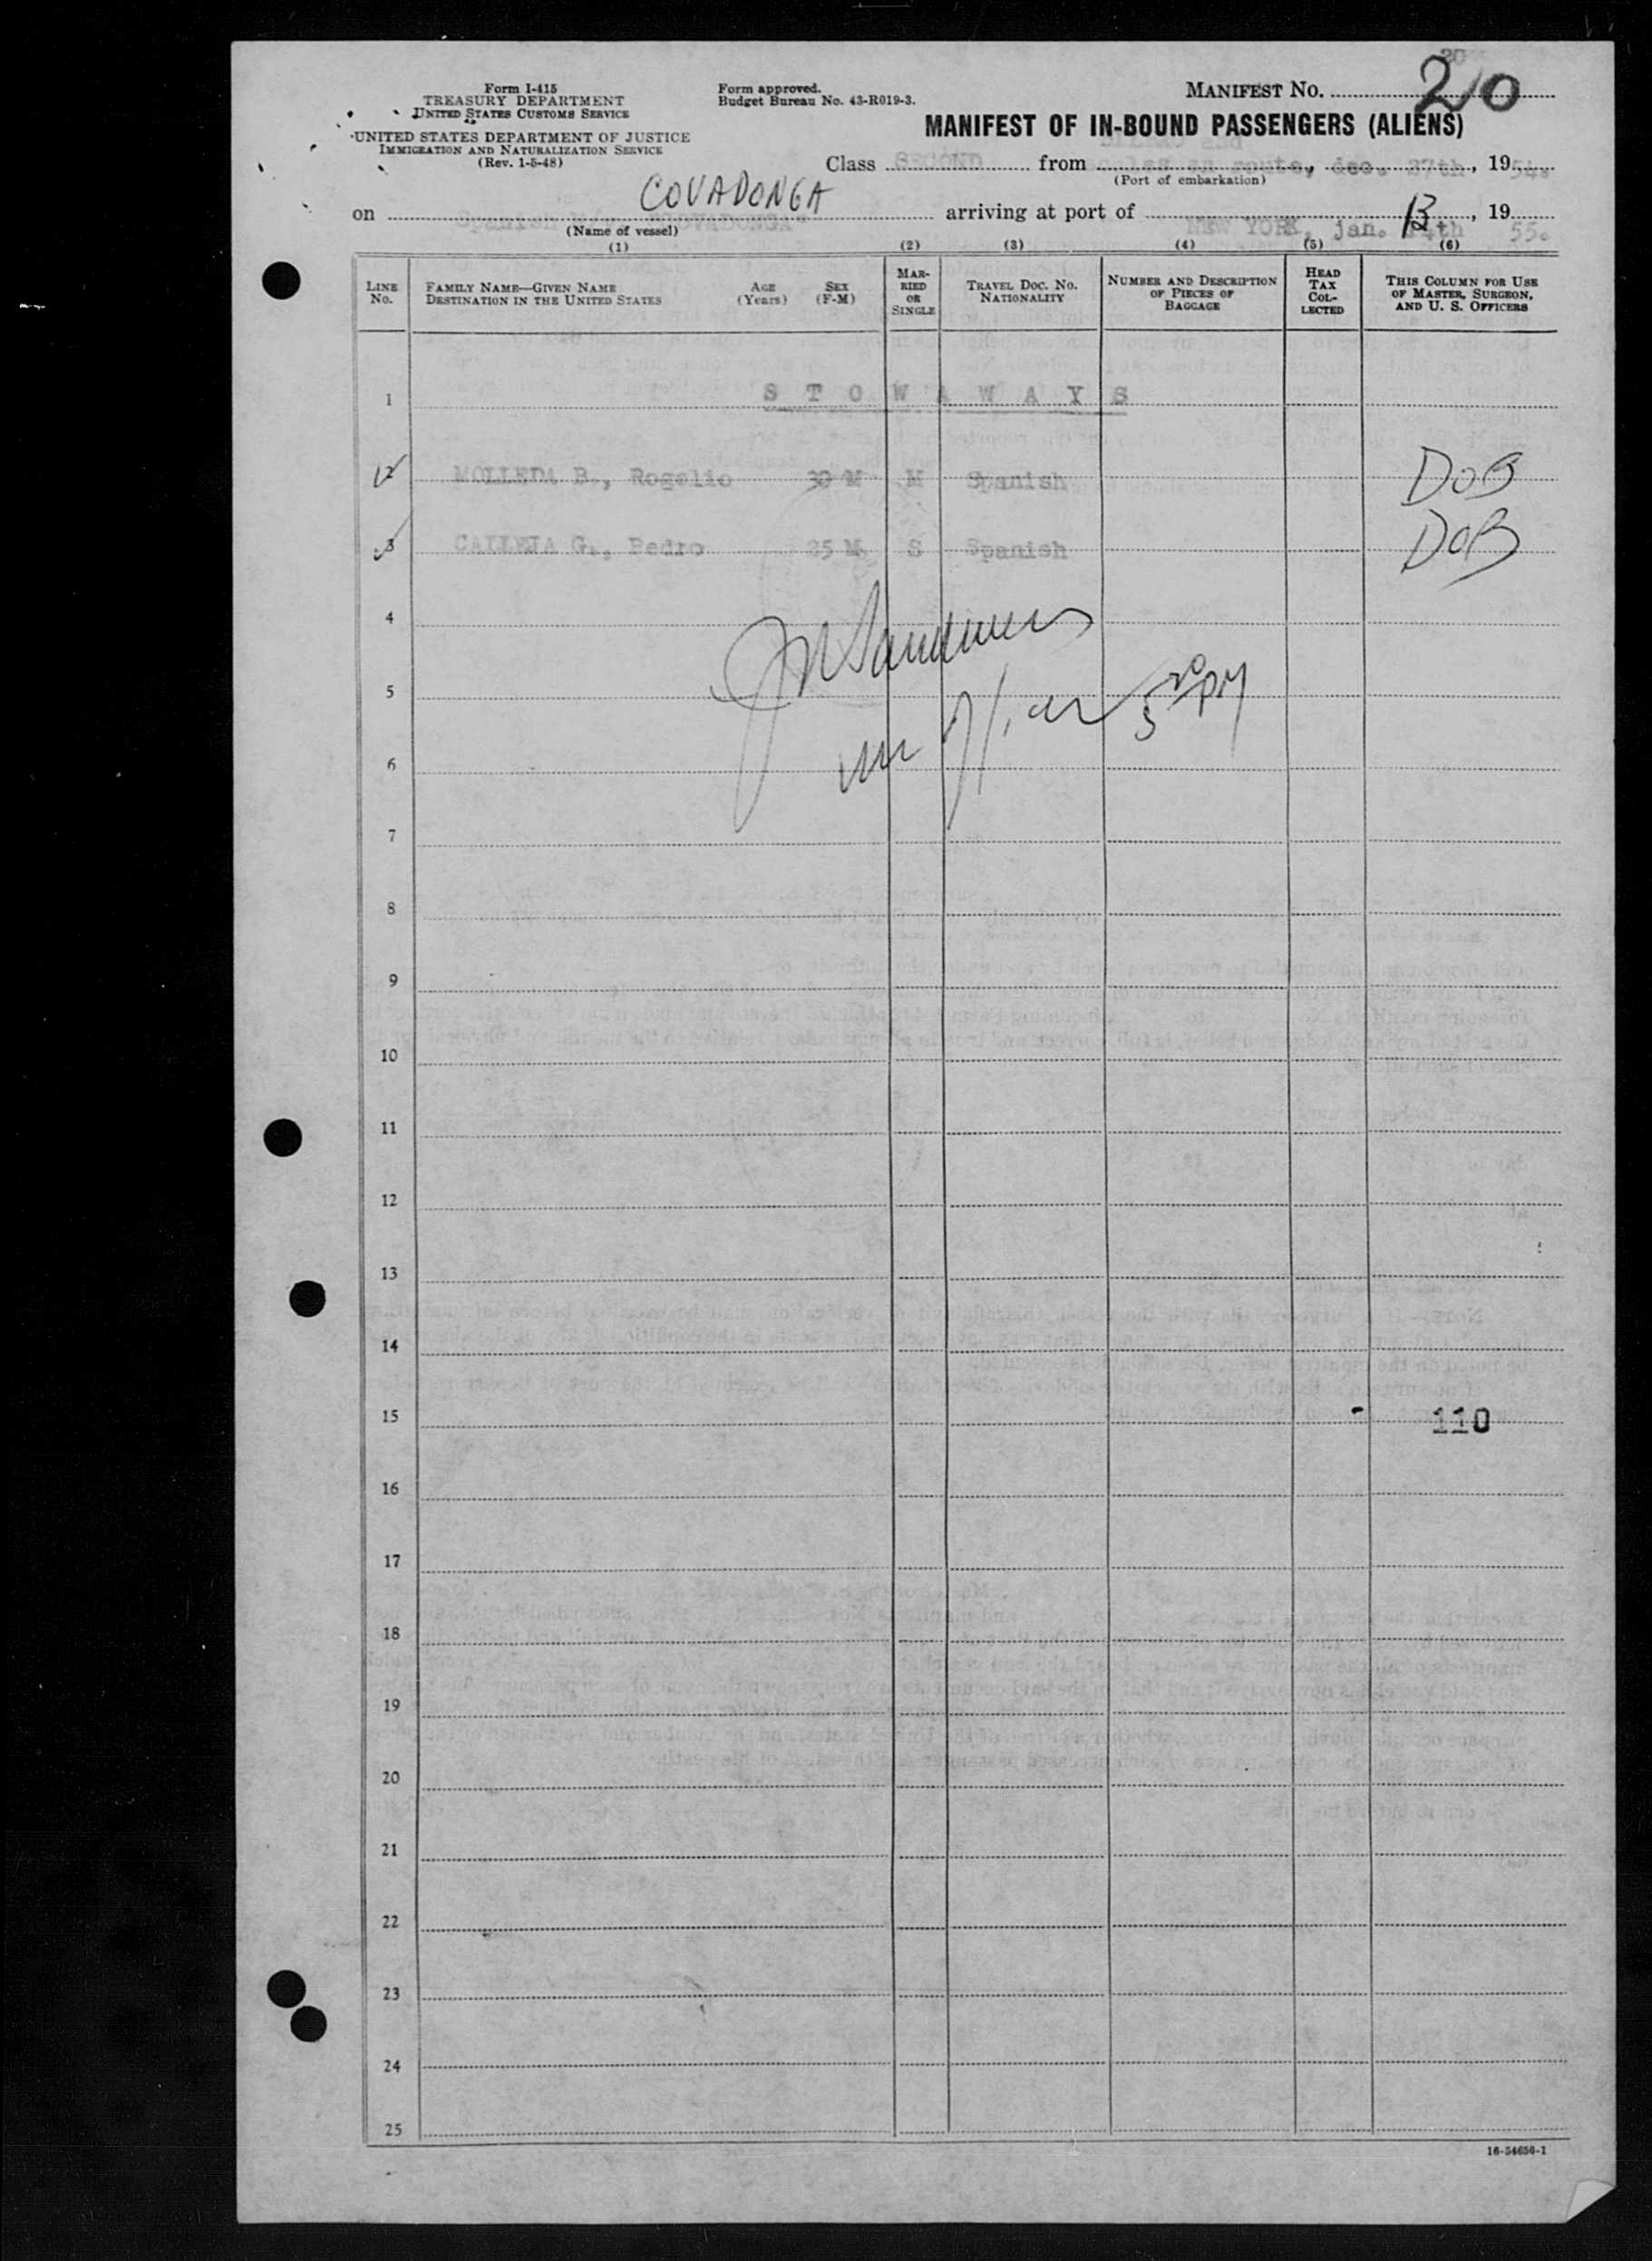 Form I-415
TREASURY DEPARTMENT
UNITED STATES CUSTOMS SERVICE
UNITED STATES DEPARTMENT OF JUSTICE
IMMIGRATION AND NATURALIZATION SERVICE
(Rev. 1-5-48)
Form approved.
Budget Bureau No. 43-R019-3.
MANIFEST NO. 20
MANIFEST OF IN-BOUND PASSENGERS (ALIENS)
Class SECOND from en route, dec. 27th, 1954.
(Port of embarkation)
on COVADONGA arriving at port of 13, 19
Spanish "COVADONGA" NEW YORK, jan. 14th 55.
(Name of vessel)
(1) (2) (3) (4) (5) (6)
LINE NO. FAMILY NAME—GIVEN NAME DESTINATION IN THE UNITED STATES AGE (Years) SEX (F-M) MARRIED OR SINGLE TRAVEL DOC. NO. NATIONALITY NUMBER AND DESCRIPTION OF PIECES OF BAGGAGE HEAD TAX COLLECTED THIS COLUMN FOR USE OF MASTER, SURGEON, AND U. S. OFFICERS
1 S T O W A W A Y S
2 MOLLEDA B., Rogelio 30 M M Spanish DOB
3 CALLEJA G., Pedro 25 M. S Spanish DOB
4
5
6
7
8
9
10
11
12
13
14
15 110
16
17
18
19
20
21
22
23
24
25
16-54650-1